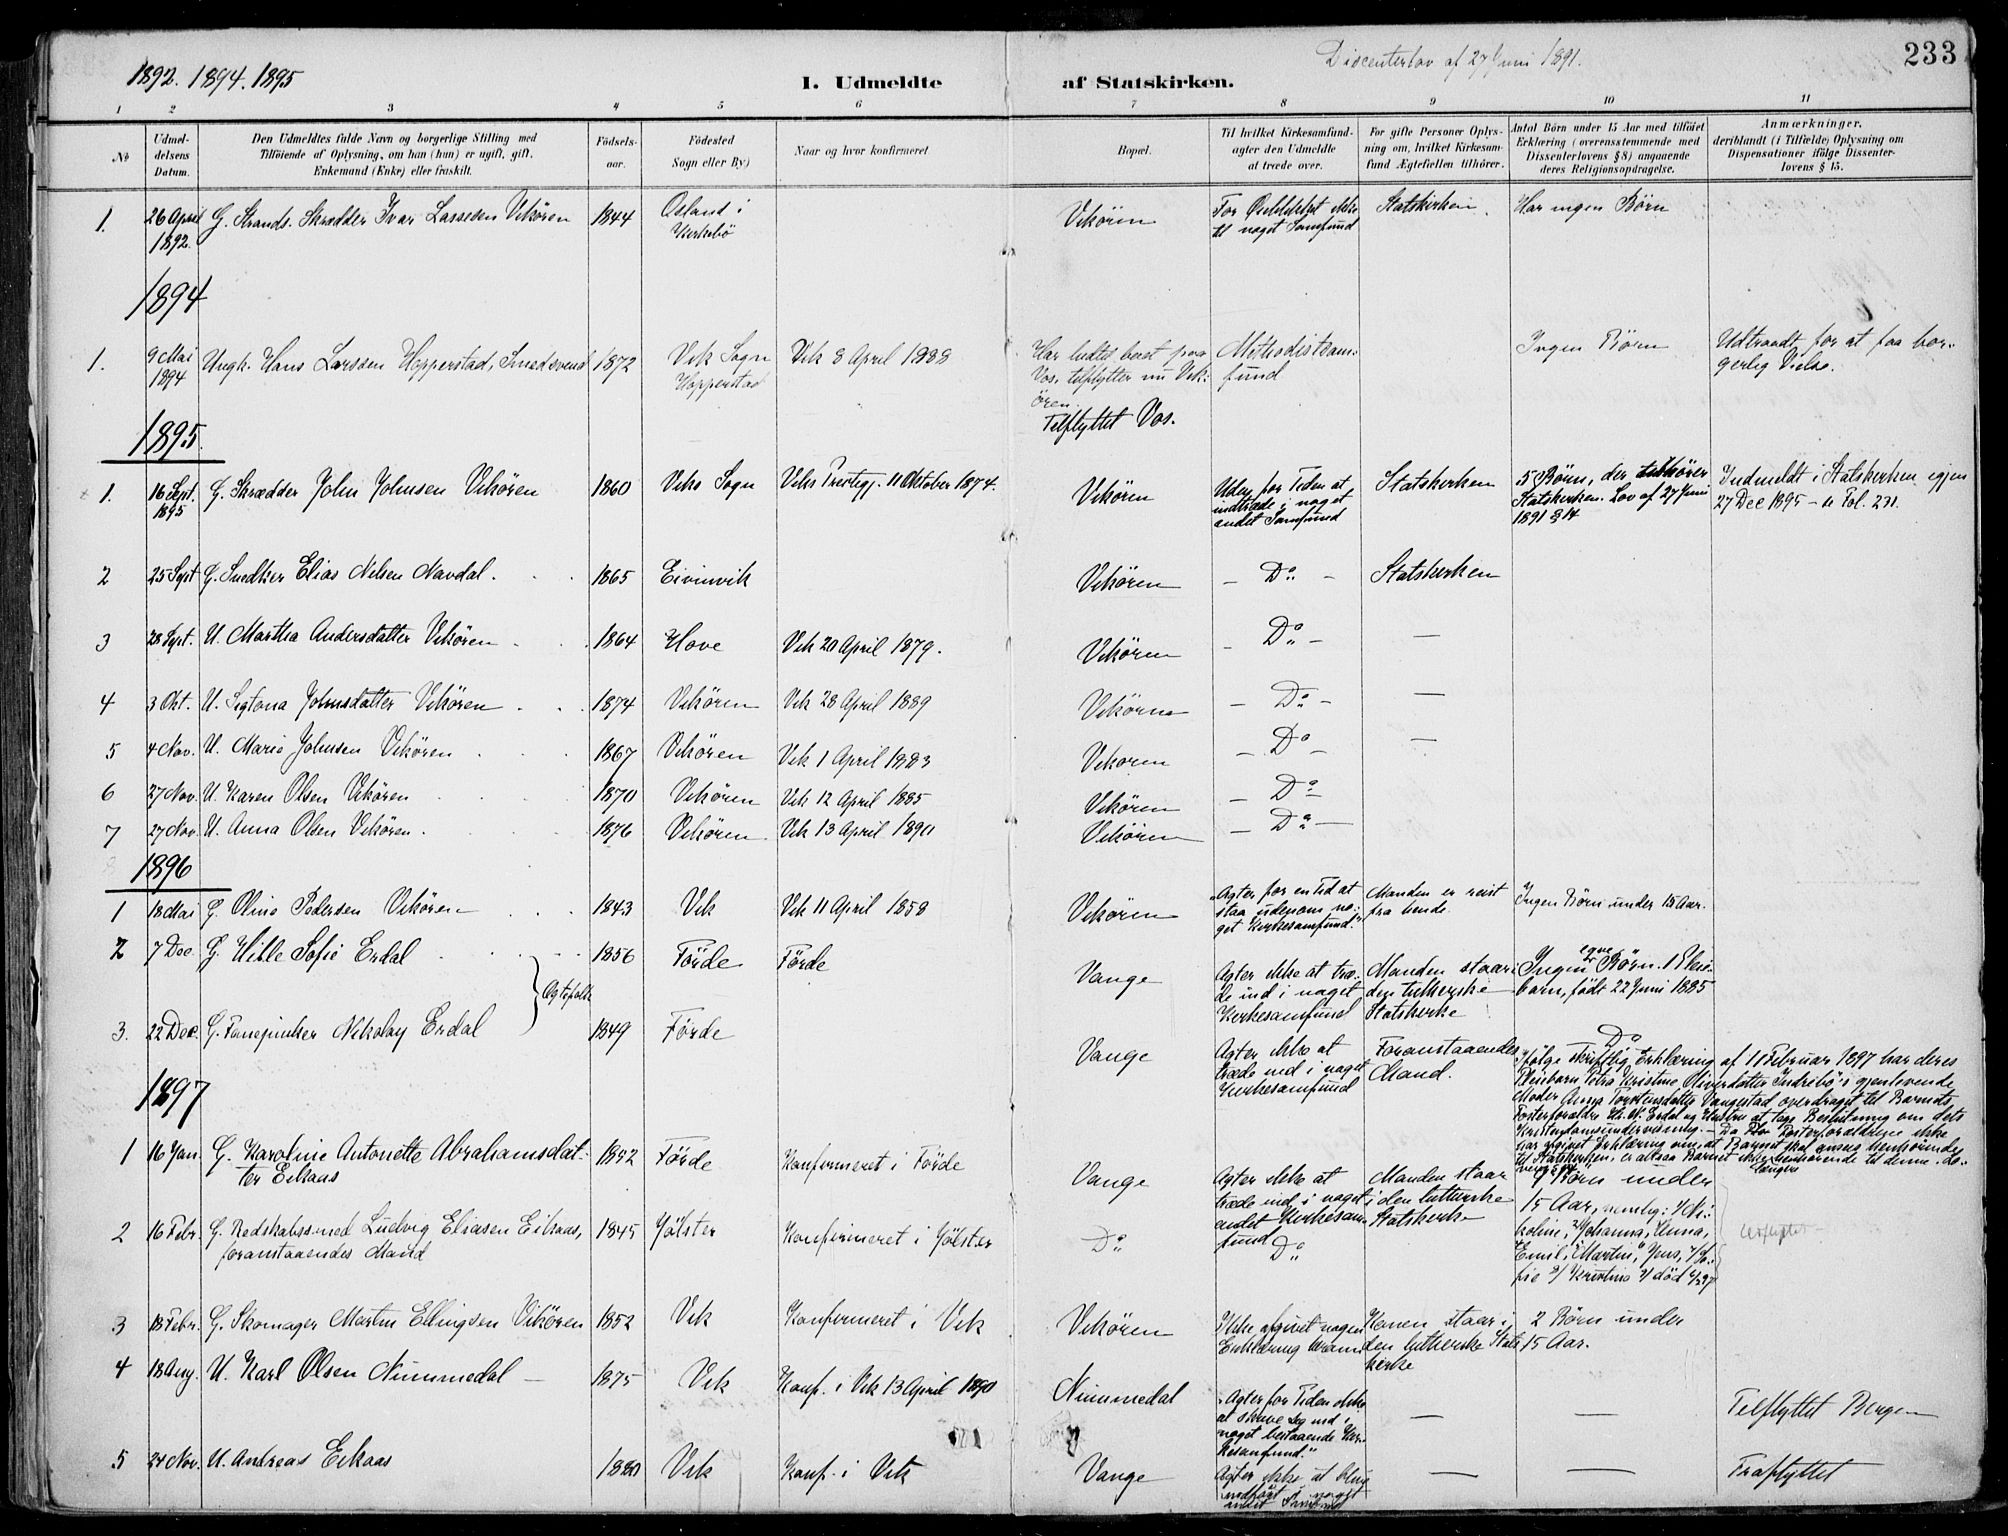 1892. 1894. 1895
I. Udmeldte af Statskirken.
Discenterlov af 27 Juni 1891.
233
1 2 3 4 5 6 7 8 9 10 11
№
Udmel-
delsens
Datum.
Den Udmeldtes fulde Navn og borgerlige Stilling med
Tilföiende af Oplysning, om han (hun) er ugift, gift,
Enkemand (Enke) eller fraskilt.
Födsels-
aar.
Födested
Sogn eller By)
Naar og hvor konfirmeret
Bopæl.
Til hvilket Kirkesamfund-
agter den Udmeldte
at træde over.
For gifte Personer Oplys-
ning om, hvilket Kirkesam-
fund Ægtefællen tilhörer.
Antal Börn under 15 Aar med tilföiet
Erklæring (overensstemmende med
Dissenterlovens § 8) angaaende
deres Religionsopdragelse.
Anmærkninger,
deriblandt (i Tilfælde) Oplysning om
Dispensationer ifölge Dissenter-
lovens § 15.
1. 26 April 1892. G. Strands. Skrædder Ivar Lassesen Vikören 1844 Osland i Kirkebö Vikören For Öieblikket ikke til noget Samfund Statskirken. Har ingen Börn
1894
1. 9 Mai 1894 Ungk. Hans Larssen Hopperstad, Smedsvend 1872 Vik Sogn Hopperstad Vik 8 April 1888 Har hidtil boet paa Vos, tilflytter nu Vik-ören. Methodistsam-fund Ingen Börn Udtraadt for at faa bor-gerlig Vielse.
Tilflyttet Vos.
1895.
1. 16 Sept. 1895 G. Skrædder John Johnsen Vikören 1860 Viks Sogn Viks Prestegj. 11 Oktober 1874. Vikören Uden for Tiden at indtræde i noget andet Samfund Statskirken 5 Börn, der tilhörer Statskirken. Lov af 27 Juni 1891 § 14 Indmeldt i Statskirken igjen 27 Dec 1895 – se Fol. 231.
2 25 Sept G. Snedker Elias Nilsen Navdal. 1865 Eivinvik Vikören – Do – Statskirken
3 28 Sept. U. Martha Andersdatter Vikören 1864 Hove Vik 20 April 1879. Vikören – Do – —
4 3 Okt. U. Sigtona Johnsdatter Vikören 1874 Vikören Vik 28 April 1889 Vikören – Do – —
5 4 Nov. U. Marie Johnsen Vikören 1867 Vikören Vik 1 April 1883 Vikoren – Do – —
6 27 Nov. U. Karen Olsen Vikören 1870 Vikören Vik 12 April 1885 Vikören – Do
7 27 Nov. U. Anna Olsen Vikören. 1876 Vikören Vik 13 April 1890 Vikören – Do –
1896
1 18 Mai G. Oline Pedersen Vikören 1843 Vik Vik 11 April 1858 Vikören "Agter for en Tid at staa udenom no-get Kirkesamfund." Manden er reist fra hende. Ingen Börn under 15 Aar.
2 7 Dec G. Hille Sofie Erdal 1856 Förde Förde Vange Agter ikke at træ-de ind i noget Kirkesamfund Manden staar i den lutherske Statskirke Ingen egne Börn. 1 Pleie-barn, födt 22 Juni 1885
Ægtefolk
3. 22 Dec. G. Nikolay Erdal 1849 Förde Vange Agter ikke at træde ind i noget Kirkesamfund Foranstaaendes Mand. Do
Ifölge skriftlig Erklæring af 11 Februar 1897 har deres
Pleiebarn Petra Kristine Oliversdatter Indrebö's gjenlevende
Moder Anna Torstensdatter Vangestad overdraget til Barnets
Fosterforældre Hr. N. Erdal og Hustru at tage Beslutning om dets
Kristendomsundervisning. – Da Fosterforældrene ikke
har afgivet Erklæring om, at Barnet skal ansees henhörende
til Statskirken, er altsaa Barnet ikke længere henhörende til denne.
1897
1 16 Jan. G. Karoline Antonette Abrahamsdat-ter Eikaas 1852 Förde Konfirmeret i Förde Vange Agter ikke at træde ind i noget andet Kirkesam-fund Manden staar i den lutherske Statskirke 9 Börn under 15 Aar, nemlig: Johanna, Anna, Emil, Martin, Jens,
2 16 Febr. G. Redskabssmed Ludvig Eliasen Eikaas, foranstaaendes Mand 1845 Jölster Konfirmeret i Jölster Do Do
3 18 Febr. G. Skomager Martin Ellingsen Vikören 1852 Vik Konfirmeret i Vik Vikören Ikke afgivet nogen Erklæring herom Konen staar i den lutherske Stats kirke 2 Börn under 15 Aar.
4 18 Aug. U. Karl Olsen Nummedal – 1875 Vik Konf. i Vik 13 April 1890 Nummedal "Agter for Tiden ikke at skrive sig ind i noget bestaaende Kir-kesamfund." — — Tilflyttet Bergen
5 24 Nov. U. Andreas Eikaas 1880 Vik Konf. i Vik Vange Agter ikke at blive indført i noget — — Fraflyttet